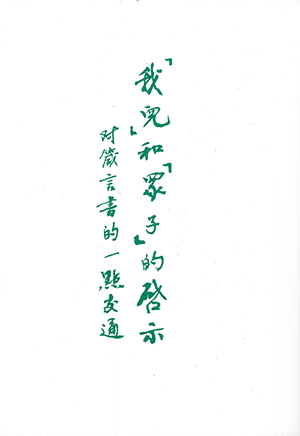 「我兒」和「眾子」的啓示
對箴言書的一點交通